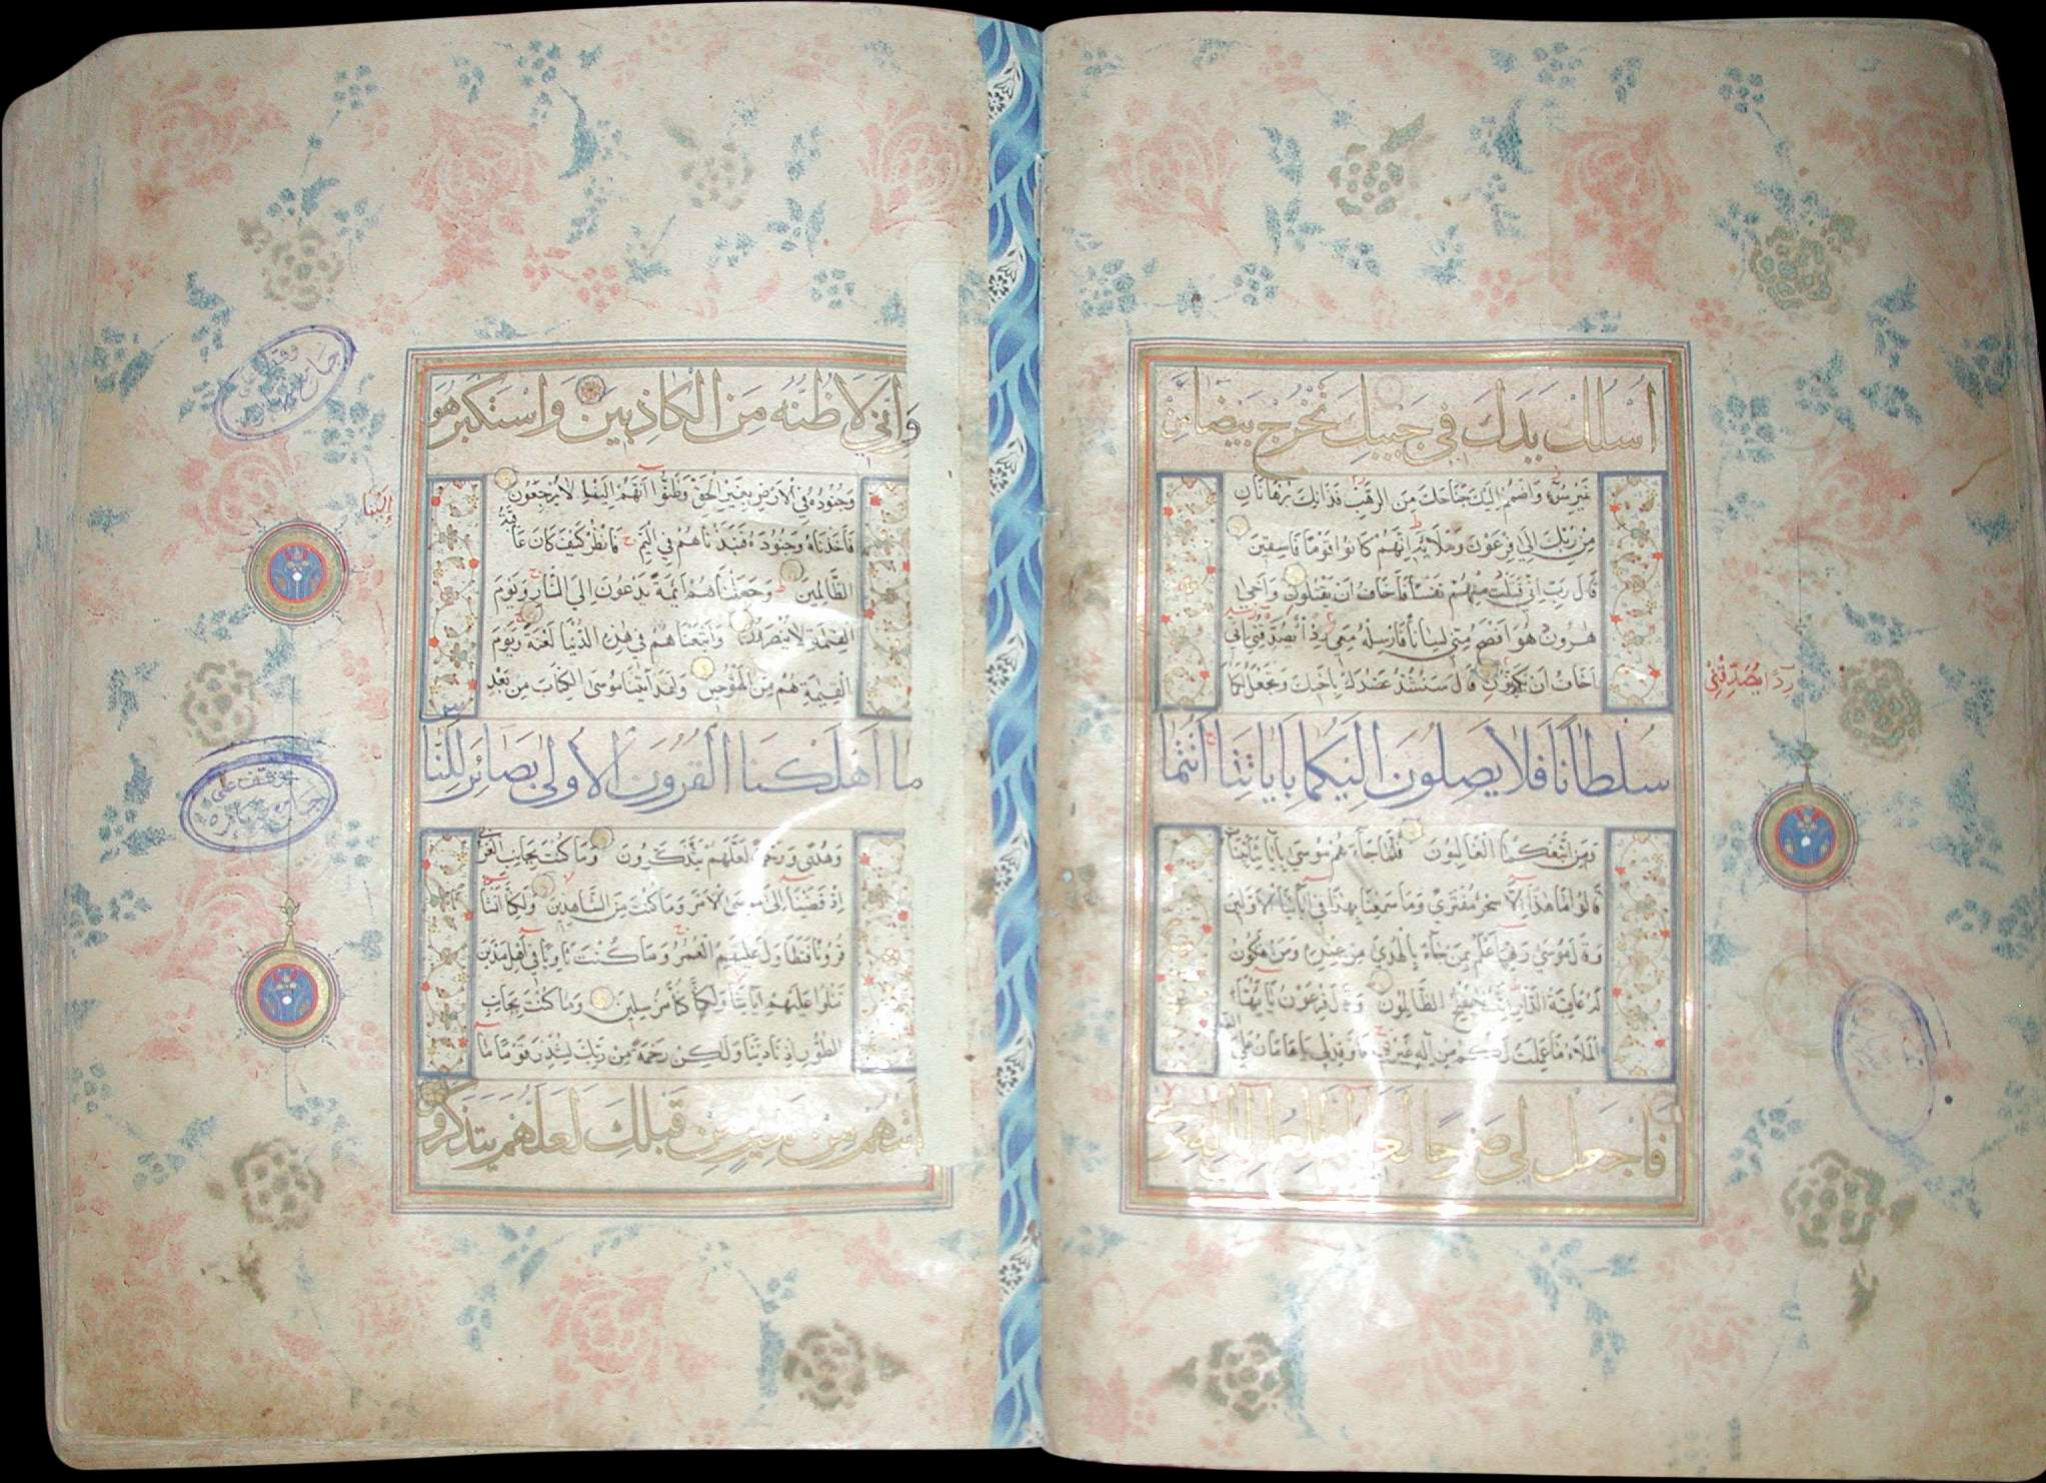 اُسْلُكْ يَدَكَ فِي جَيْبِكَ تَخْرُجْ بَيْضَاءَ مِنْ
غَيْرِ سُوءٍ وَاضْمُمْ اِلَيْكَ جَنَاحَكَ مِنَ الرَّهْبِ فَذَانِكَ بُرْهَانَانِ
مِنْ رَبِّكَ اِلَى فِرْعَوْنَ وَمَلَائِهِ اِنَّهُمْ كَانُوا قَوْمًا فَاسِقِينَ
قَالَ رَبِّ اِنِّي قَتَلْتُ مِنْهُمْ نَفْسًا فَاَخَافُ اَنْ يَقْتُلُونِ وَاَخِي
هٰرُونُ هُوَ اَفْصَحُ مِنِّي لِسَانًا فَاَرْسِلْهُ مَعِيَ رِدْاً يُصَدِّقُنِي اِنِّي
اَخَافُ اَنْ يُكَذِّبُونِ قَالَ سَنَشُدُّ عَضُدَكَ بِاَخِيكَ وَنَجْعَلُ لَكُمَا
سُلْطَانًا فَلَا يَصِلُونَ اِلَيْكُمَا بِاٰيَاتِنَا اَنْتُمَا
وَمَنِ اتَّبَعَكُمَا الْغَالِبُونَ فَلَمَّا جَاءَهُمْ مُوسَى بِاٰيَاتِنَا بَيِّنَاتٍ
قَالُوا مَا هٰذَا اِلَّا سِحْرٌ مُفْتَرًى وَمَا سَمِعْنَا بِهٰذَا فِي اٰبَائِنَا الْاَوَّلِينَ
وَقَالَ مُوسَى رَبِّي اَعْلَمُ بِمَنْ جَاءَ بِالْهُدَى مِنْ عِنْدِهِ وَمَنْ تَكُونُ
لَهُ عَاقِبَةُ الدَّارِ اِنَّهُ لَا يُفْلِحُ الظَّالِمُونَ وَقَالَ فِرْعَوْنُ يَا اَيُّهَا
الْمَلَاُ مَا عَلِمْتُ لَكُمْ مِنْ اِلٰهٍ غَيْرِي فَاَوْقِدْ لِي يَا هَامَانُ عَلَى
فَاجْعَلْ لِي صَرْحًا لَعَلِّي اَطَّلِعُ اِلَى
رِدْاً يُصَدِّقْنِي
وَاِنِّي لَاَظُنُّهُ مِنَ الْكَاذِبِينَ وَاسْتَكْبَرَ هُوَ
وَجُنُودُهُ فِي الْاَرْضِ بِغَيْرِ الْحَقِّ وَظَنُّوا اَنَّهُمْ اِلَيْنَا لَا يُرْجَعُونَ
فَاَخَذْنَاهُ وَجُنُودَهُ فَنَبَذْنَاهُمْ فِي الْيَمِّ فَانْظُرْ كَيْفَ كَانَ عَاقِبَةُ
الظَّالِمِينَ وَجَعَلْنَاهُمْ اَئِمَّةً يَدْعُونَ اِلَى النَّارِ وَيَوْمَ
الْقِيٰمَةِ لَا يُنْصَرُونَ وَاَتْبَعْنَاهُمْ فِي هٰذِهِ الدُّنْيَا لَعْنَةً وَيَوْمَ
الْقِيٰمَةِ هُمْ مِنَ الْمَقْبُوحِينَ وَلَقَدْ اٰتَيْنَا مُوسَى الْكِتَابَ مِنْ بَعْدِ
مَا اَهْلَكْنَا الْقُرُونَ الْاُولَى بَصَائِرَ لِلنَّاسِ
وَهُدًى وَرَحْمَةً لَعَلَّهُمْ يَتَذَكَّرُونَ وَمَا كُنْتَ بِجَانِبِ الْغَرْبِيِّ
اِذْ قَضَيْنَا اِلَى مُوسَى الْاَمْرَ وَمَا كُنْتَ مِنَ الشَّاهِدِينَ وَلٰكِنَّا اَنْشَاْنَا
قُرُونًا فَتَطَاوَلَ عَلَيْهِمُ الْعُمُرُ وَمَا كُنْتَ ثَاوِيًا فِي اَهْلِ مَدْيَنَ
تَتْلُوا عَلَيْهِمْ اٰيَاتِنَا وَلٰكِنَّا كُنَّا مُرْسِلِينَ وَمَا كُنْتَ بِجَانِبِ
الطُّورِ اِذْ نَادَيْنَا وَلٰكِنْ رَحْمَةً مِنْ رَبِّكَ لِتُنْذِرَ قَوْمًا مَا
اَتٰيهُمْ مِنْ نَذِيرٍ مِنْ قَبْلِكَ لَعَلَّهُمْ يَتَذَكَّرُونَ
اِلَيْنَا